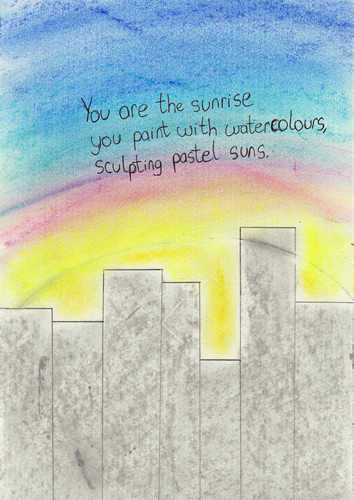 You are the sunrise
you paint with watercolours,
sculpting pastel suns.